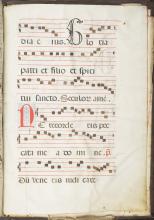 dia e ius. Glo ria
patri et filio et spiri
tui sancto. Seculor ame.
Ne recorde ris pec
cata mea domine. p.
Dū vene ris iudi care